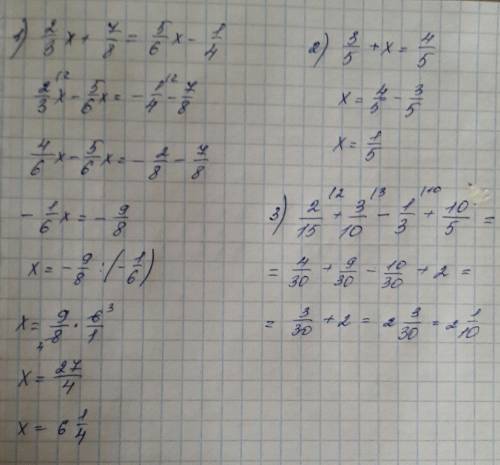 1) 2/3 x + 7/8 = 5/6 x - 1/4
2/3 x /2 - 5/6 x = - 1/4 /2 - 7/8
4/6 x - 5/6 x = - 2/8 - 7/8
- 1/6 x = - 9/8
x = - 9/8 : (- 1/6)
x = 9/8 4 · 6/1 3
x = 27/4
x = 6 1/4
2) 3/5 + x = 4/5
x = 4/5 - 3/5
x = 1/5
3) 2/15 /2 + 3/10 /3 - 1/3 /10 + 10/5 =
= 4/30 + 9/30 - 10/30 + 2 =
= 3/30 + 2 = 2 3/30 = 2 1/10